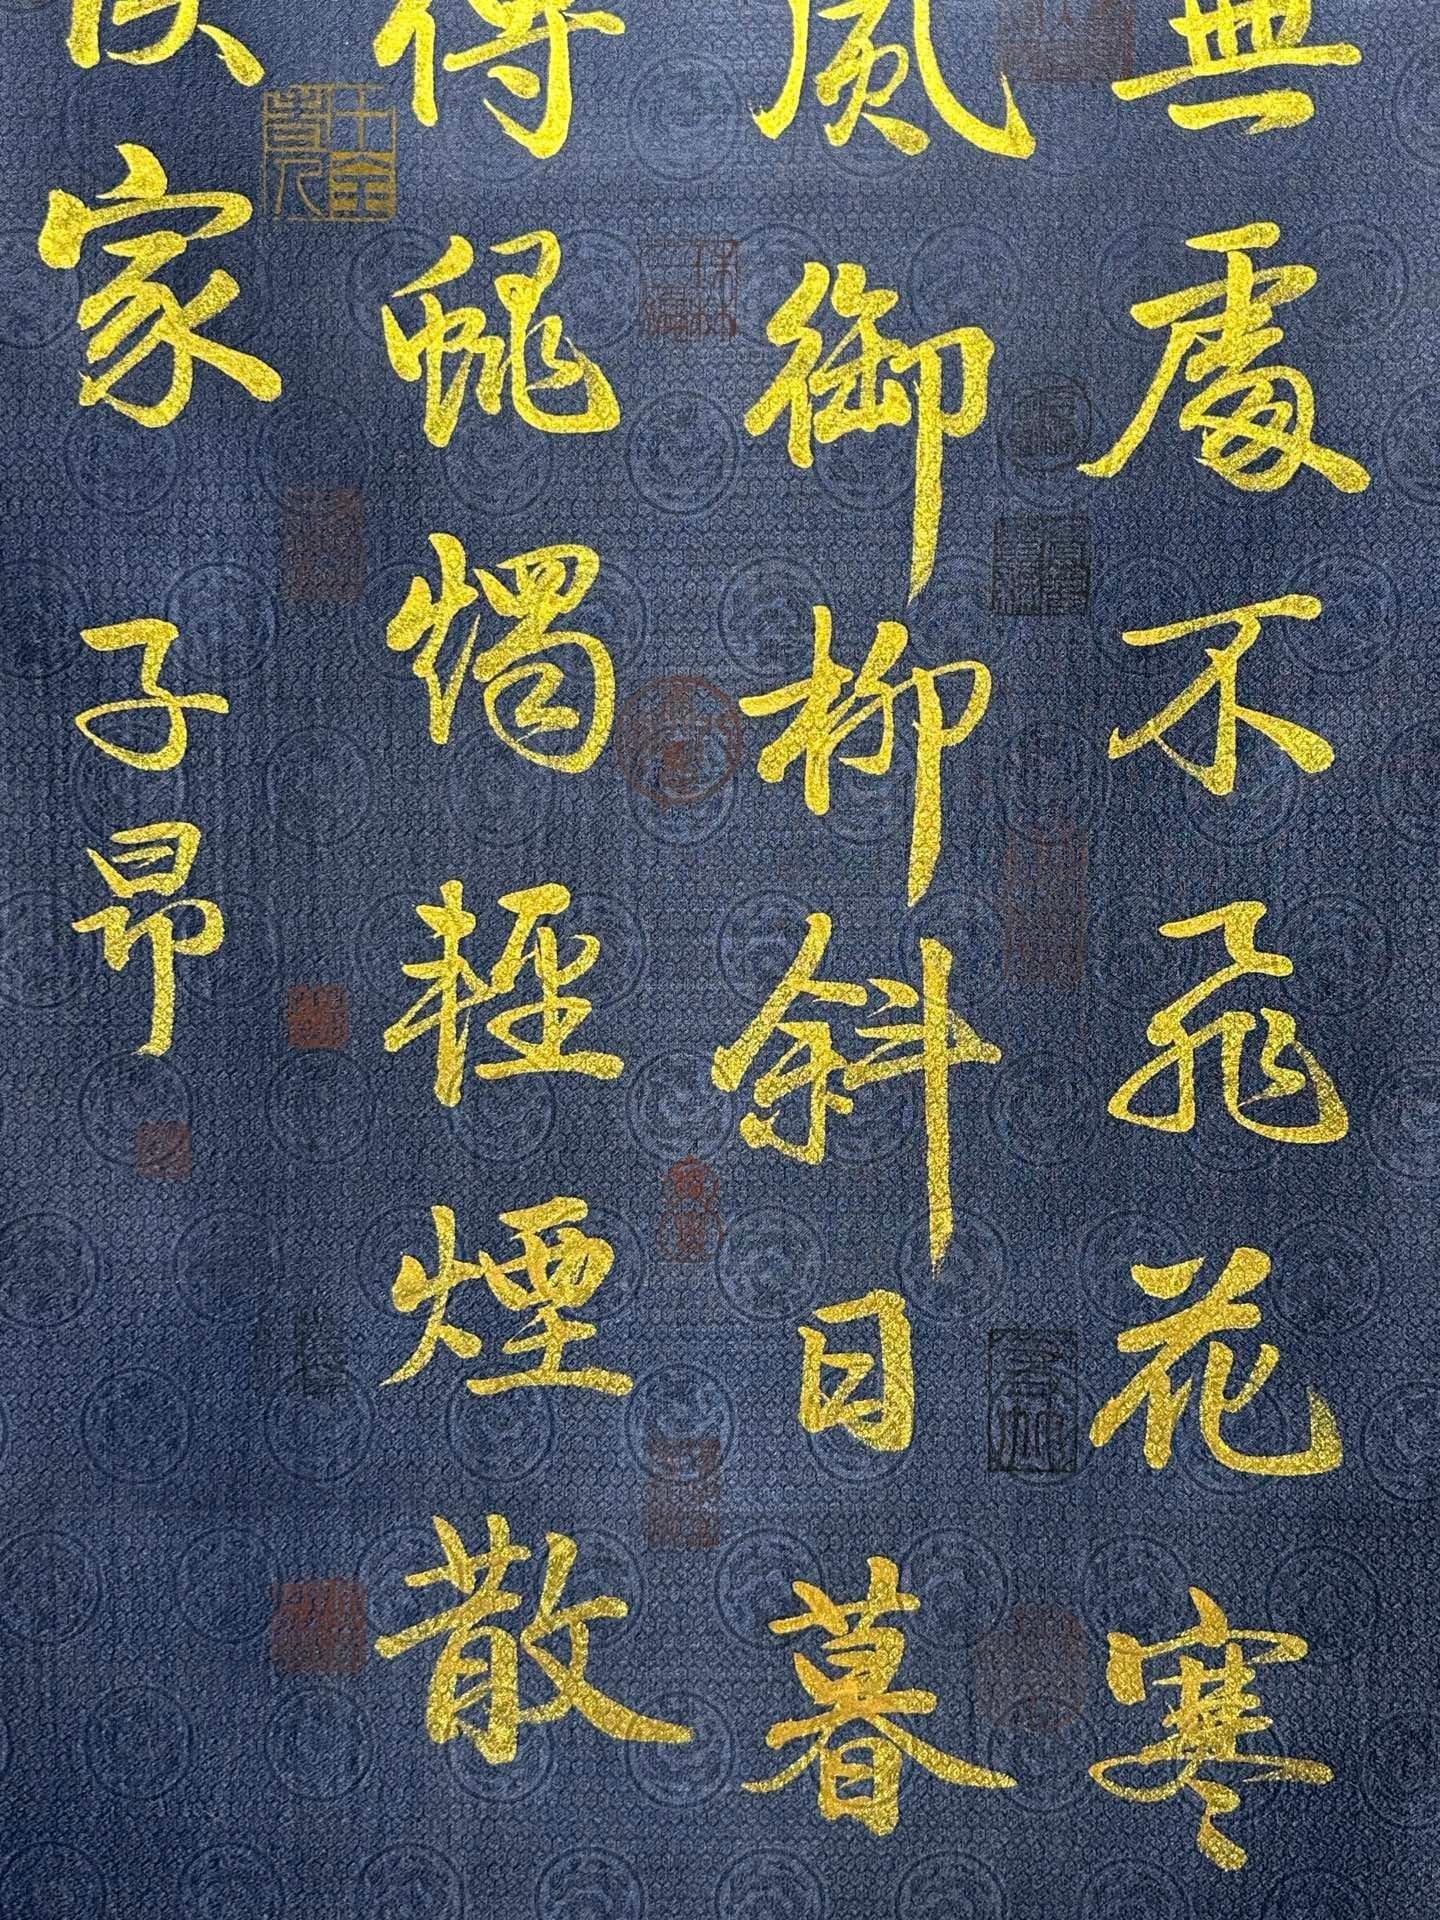 無處不飛花寒
風御柳斜日暮
傳蠟燭輕煙散
侯家 子昂